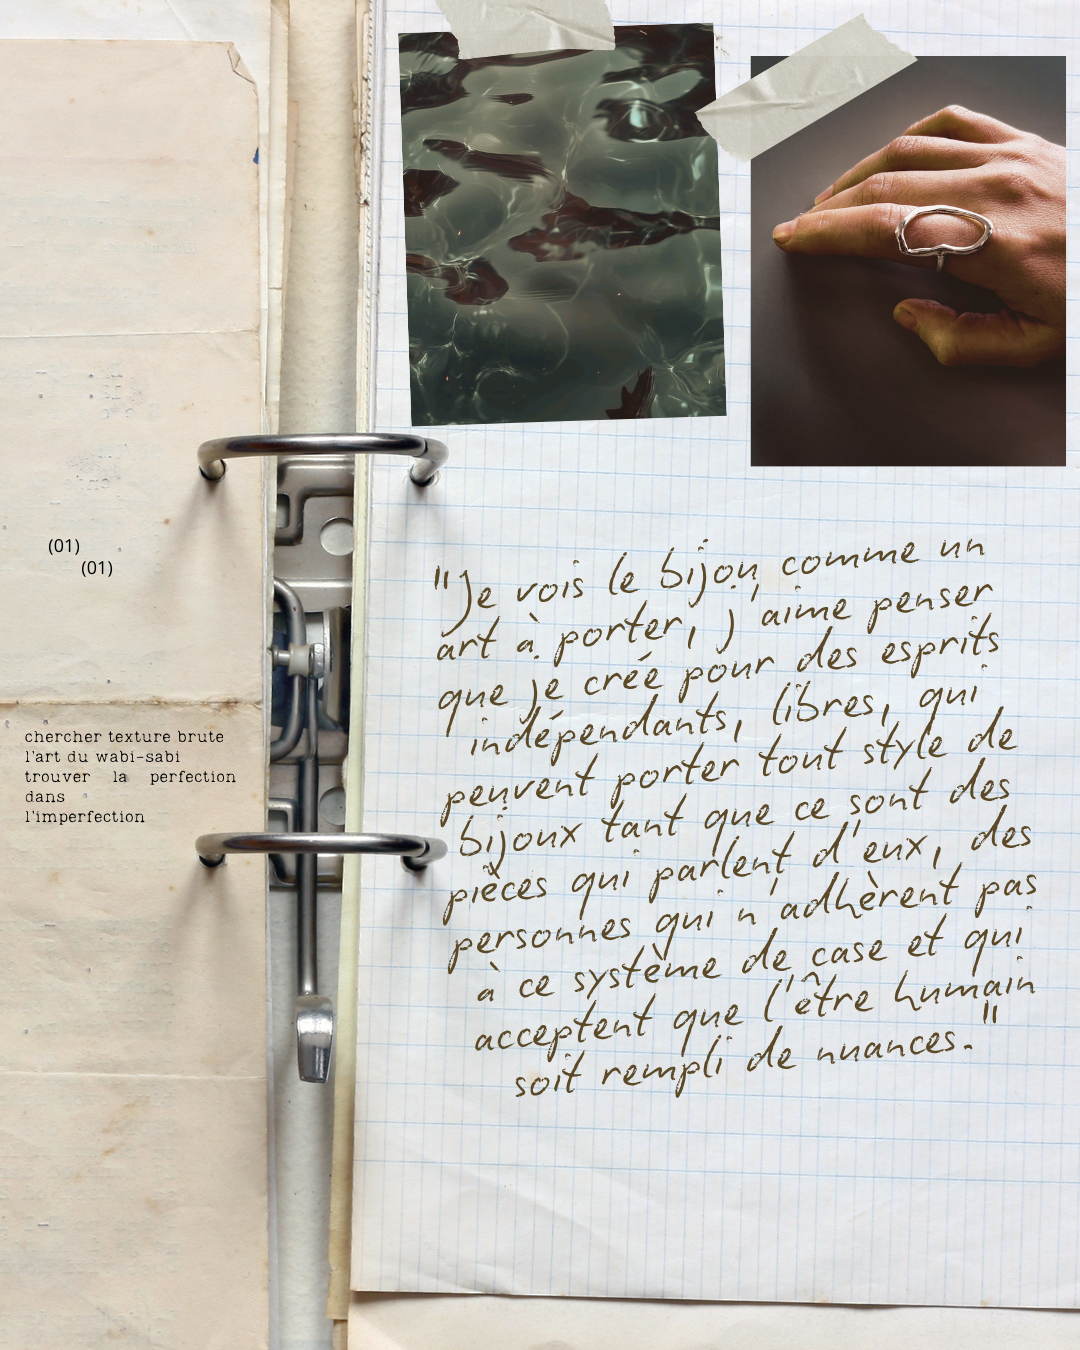 (01)
(01)
chercher texture brute
l'art du wabi-sabi
trouver la perfection
dans
l'imperfection
"Je vois le bijou comme un
art à porter, j'aime penser
que je créé pour des esprits
indépendants, libres, qui
peuvent porter tout style de
bijoux tant que ce sont des
pièces qui parlent d'eux, des
personnes qui n'adhèrent pas
à ce système de case et qui
acceptent que l'être humain
soit rempli de nuances."